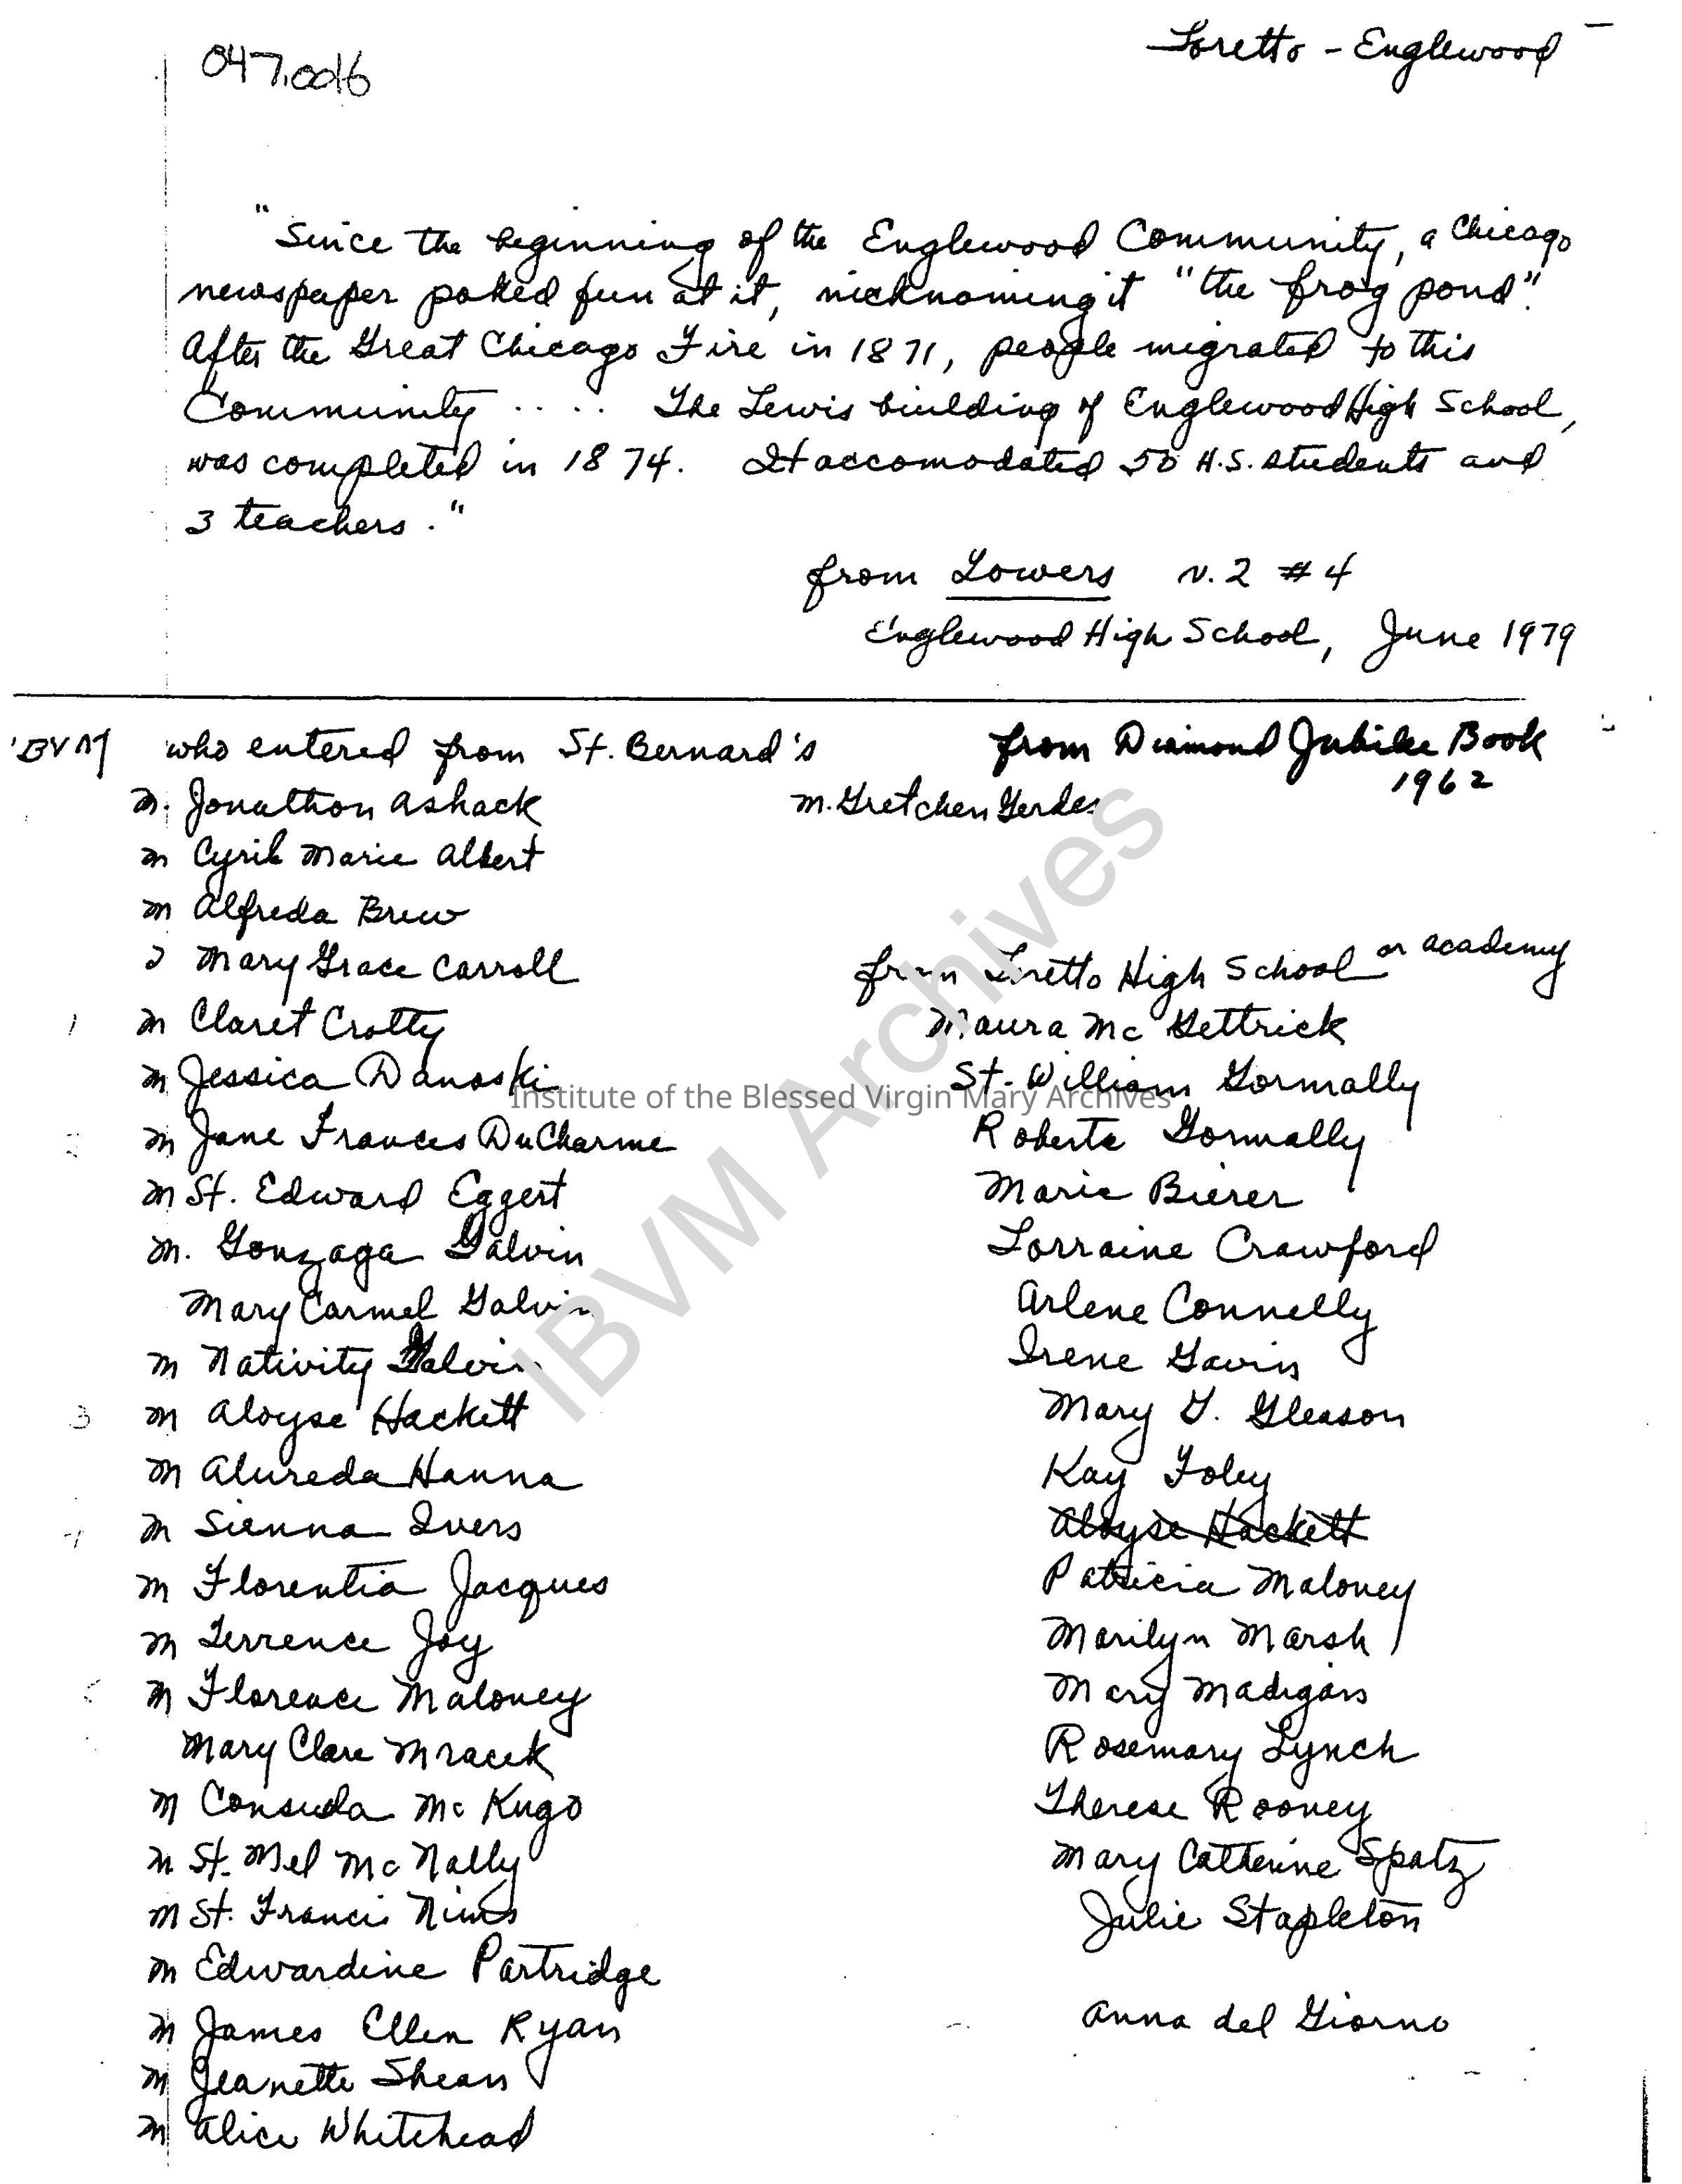 047.0016
Loretto - Englewood
"Since the beginning of the Englewood Community, a Chicago
newspaper poked fun at it, nicknaming it "the frog pond".
After the Great Chicago Fire in 1871, people migrated to this
Community .... The Lewis building of Englewood High School,
was completed in 1874. It accomodated 50 H.S. students and
3 teachers."
from Towers v.2 #4
Englewood High School, June 1979
BVM who entered from St. Bernard's
M. Jonathon Ashack
M Cyril Marie Albert
M Alfreda Brew
Mary Grace Carroll
1 M Claret Crotty
M Jessica Danoski
M Jane Frances DuCharme
M St. Edward Eggert
M. Gonzaga Galvin
Mary Carmel Galvin
M Nativity Galvin
3 M Aloyse Hackett
M Alureda Hanna
M Sienna Ivers
M Florentia Jacques
M Terrence Joy
M Florence Maloney
Mary Clare Mracek
M Consuela McKugo
M St. Mel McNally
M St. Francis Nims
M Edwardine Partridge
M James Ellen Ryan
M Jeanette Shean
M Alice Whitehead
from Diamond Jubilee Book
1962
M. Gretchen Gerdes
from Loretto High School or academy
Maura McGettrick
St. William Gormally
Roberta Gormally
Marie Bierer
Lorraine Crawford
Arlene Connelly
Irene Gavin
Mary G. Gleason
Kay Foley
Aloyse Hackett
Patricia Maloney
Marilyn Marsh
Mary Madigan
Rosemary Lynch
Therese Rooney
Mary Catherine Spatz
Julie Stapleton
Anna del Giorno
IBVM Archives
Institute of the Blessed Virgin Mary Archives